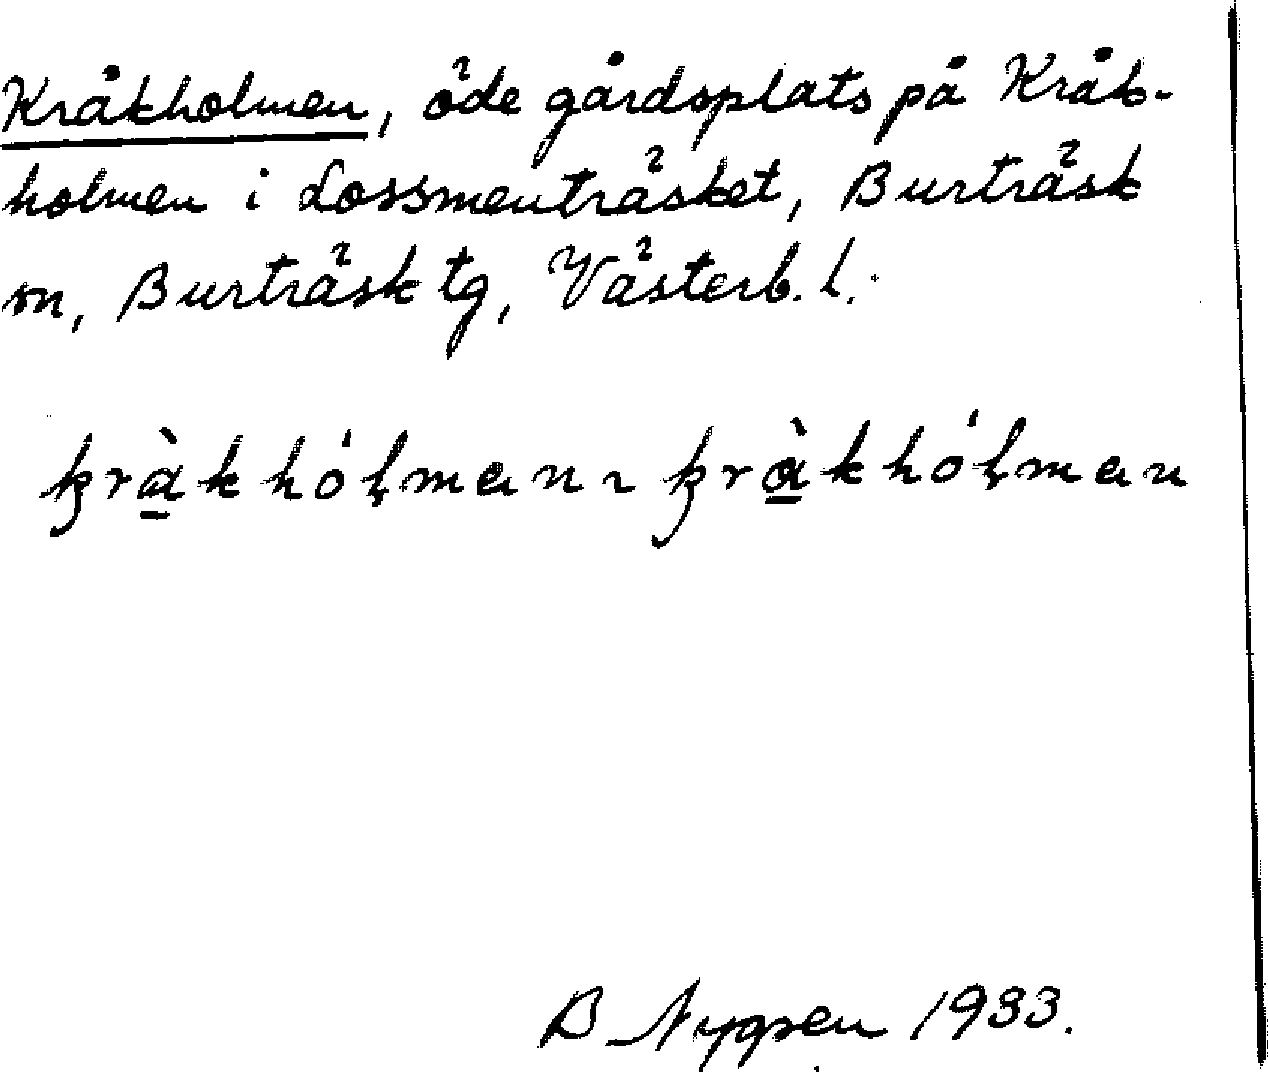 Kråkholmen, öde gårdsplats på Kråk-
holmen i Lossmenträsket, Burträsk
sn, Burträsk tg, Västerb. l.
kràkhólmen ɩ kràkhólmen
B Nygren 1933.